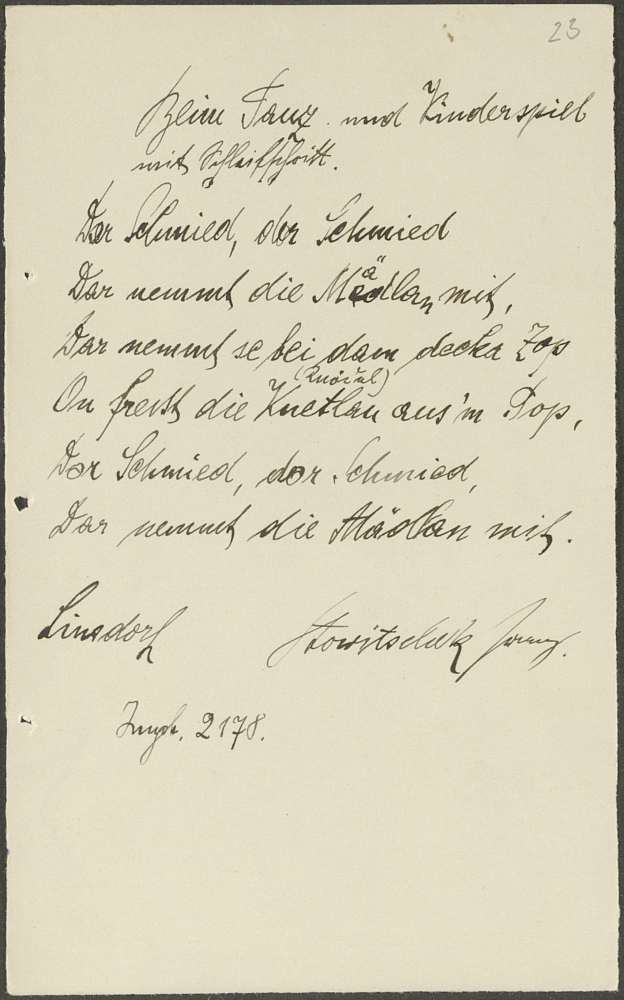 23
Beim Tanz- und Kinderspiel
mit Schleifschritt.
Dar Schmied, dar Schmied
Dar nemmt die Mädlan mit,
Dar nemmt se bei dam decka Zop
(Knödel)
On freßt die Knetlan aus'm Top,
Dar Schmied, dar Schmied,
Dar nemmt die Mädlan mit.
Linsdorf
2178.